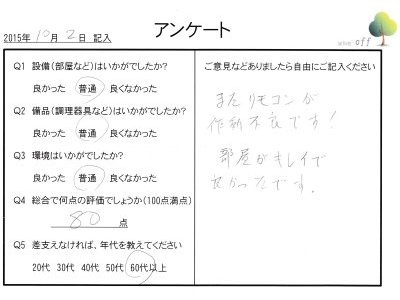 アンケート
2015年 10月 2日 記入
off
Q1 設備(部屋など)はいかがでしたか?
良かった 普通 良くなかった
Q2 備品(調理器具など)はいかがでしたか?
良かった 普通 良くなかった
Q3 環境はいかがでしたか?
良かった 普通 良くなかった
Q4 総合で何点の評価でしょうか(100点満点)
80 点
Q5 差支えなければ、年代を教えてください
20代 30代 40代 50代 60代以上
ご意見などありましたら自由にご記入ください
またリモコンが
作動不良です!
部屋がキレイで
よかったです。